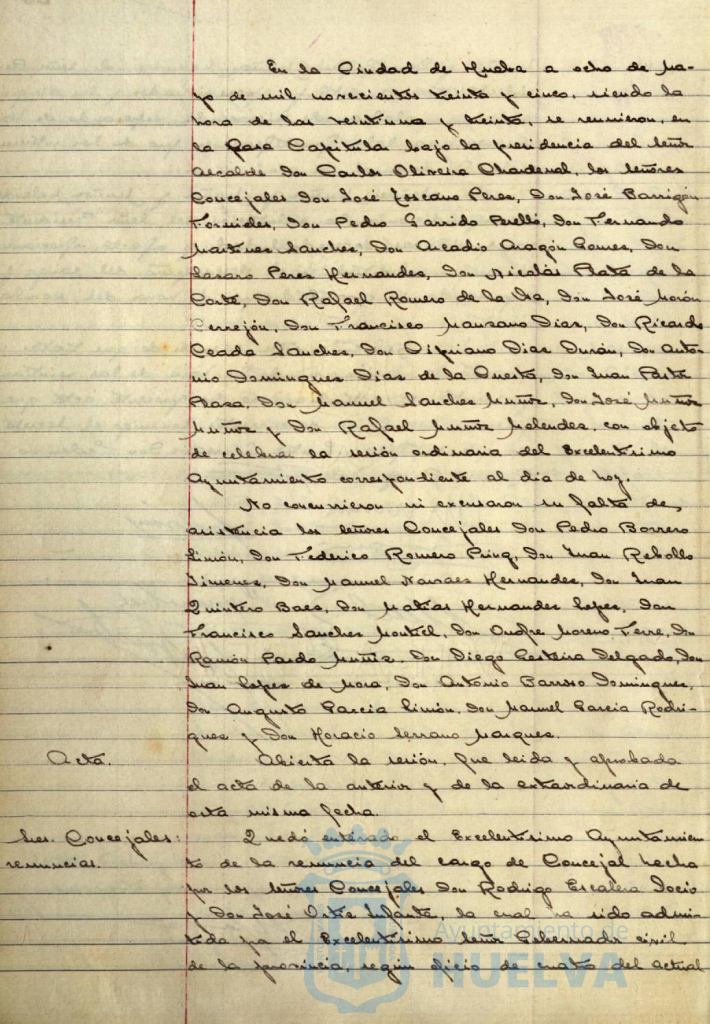 En la Ciudad de Huelva a ocho de Ma-
yo de mil novecientos treinta y cinco, siendo la
hora de las veintiuna y treinta, se reunieron, en
la Casa Capitular bajo la presidencia del Señor
Alcalde Don Carlos Oliveira Chardenal, los Señores
Concejales Don José Toscano Perez, Don José Barrigón
Fornides, Don Pedro Garrido Perelló, Don Fernando
Martinez Sanchez, Don Arcadio Aragón Gomez, Don
Lazaro Perez Hernandez, Don Nicolás Plata de la
Corte, Don Rafael Romero de la Osa, Don José Morón
Cerrejón, Don Francisco Manzano Diaz, Don Ricardo
Ceada Sanchez, Don Cipriano Diaz Durán, Don Anto-
nio Dominguez Diaz de la Cuesta, Don Juan Pastor
Plaza, Don Manuel Sanchez Muñoz, Don José Muñoz
Muñoz y Don Rafael Muñoz Melendez, con objeto
de celebrar la sesión ordinaria del Excelentisimo
Ayuntamiento correspondiente al dia de hoy.
No concurrieron ni excusaron su falta de
asistencia los Señores Concejales Don Pedro Borrero
Limón, Don Federico Romero Prinq, Don Juan Rebollo
Jimenez, Don Manuel Narvaez Hernandez, Don Juan
Quintero Baez, Don Matías Hernandez Lopez, Don
Francisco Sanchez Montiel, Don Onofre Moreno Ferre, Don
Ramón Pardo Muñiz, Don Diego Gesteira Delgado, Don
Juan Lopez de Mora, Don Antonio Barroso Dominguez,
Don Augusto Garcia Limón, Don Manuel Garcia Rodri-
guez y Don Horacio Serrano Marquez.
Acta. Abierta la sesión, fue leida y aprobada
el acta de la anterior y de la extraordinaria de
esta misma fecha.
Sres. Concejales: Quedó enterado el Excelentisimo Ayuntamien
renuncias. to de la renuncia del cargo de Concejal hecha
por los Señores Concejales Don Rodrigo Escalera Tocio
y Don José Ortiz Infante, la cual ha sido admi-
tida por el Excelentisimo Señor Gobernador civil
de la provincia, según oficio de cuatro del actual
Ayuntamiento de
HUELVA